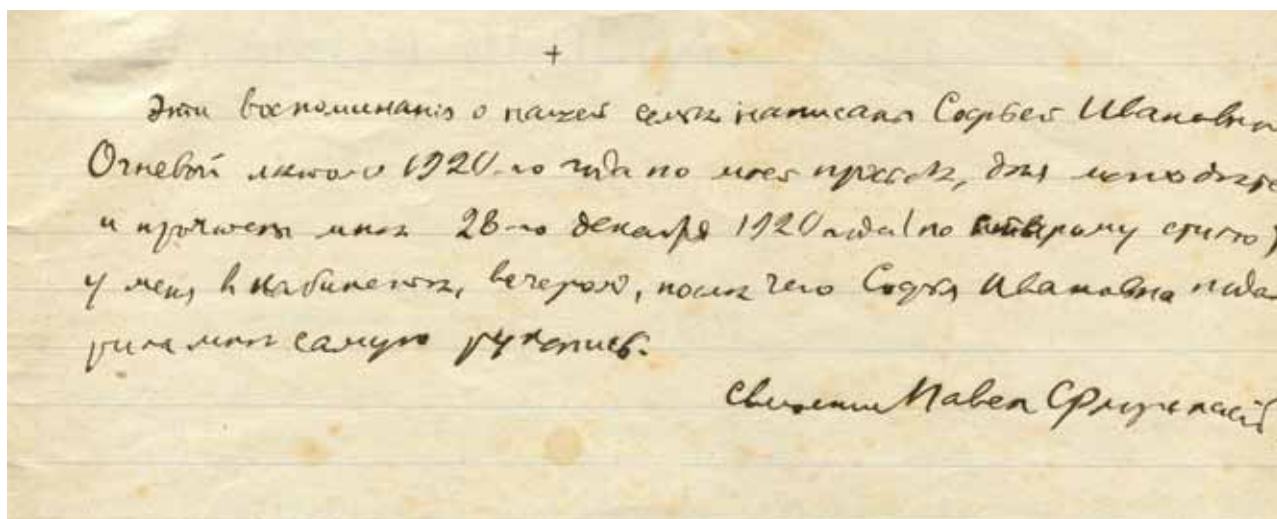 +
Эти воспоминанія о нашей семьѣ написаны Софьей Ивановной
Огневой лѣтомъ 1920-го года по моей просьбѣ, для моихъ дѣтей
и прочтены мнѣ 28-го декабря 1920 года (по старому стилю)
у меня в кабинетѣ, вечеромъ, послѣ чего Софья Ивановна пода-
рила мнѣ самую рукопись.
Священникъ Павелъ Флоренскій